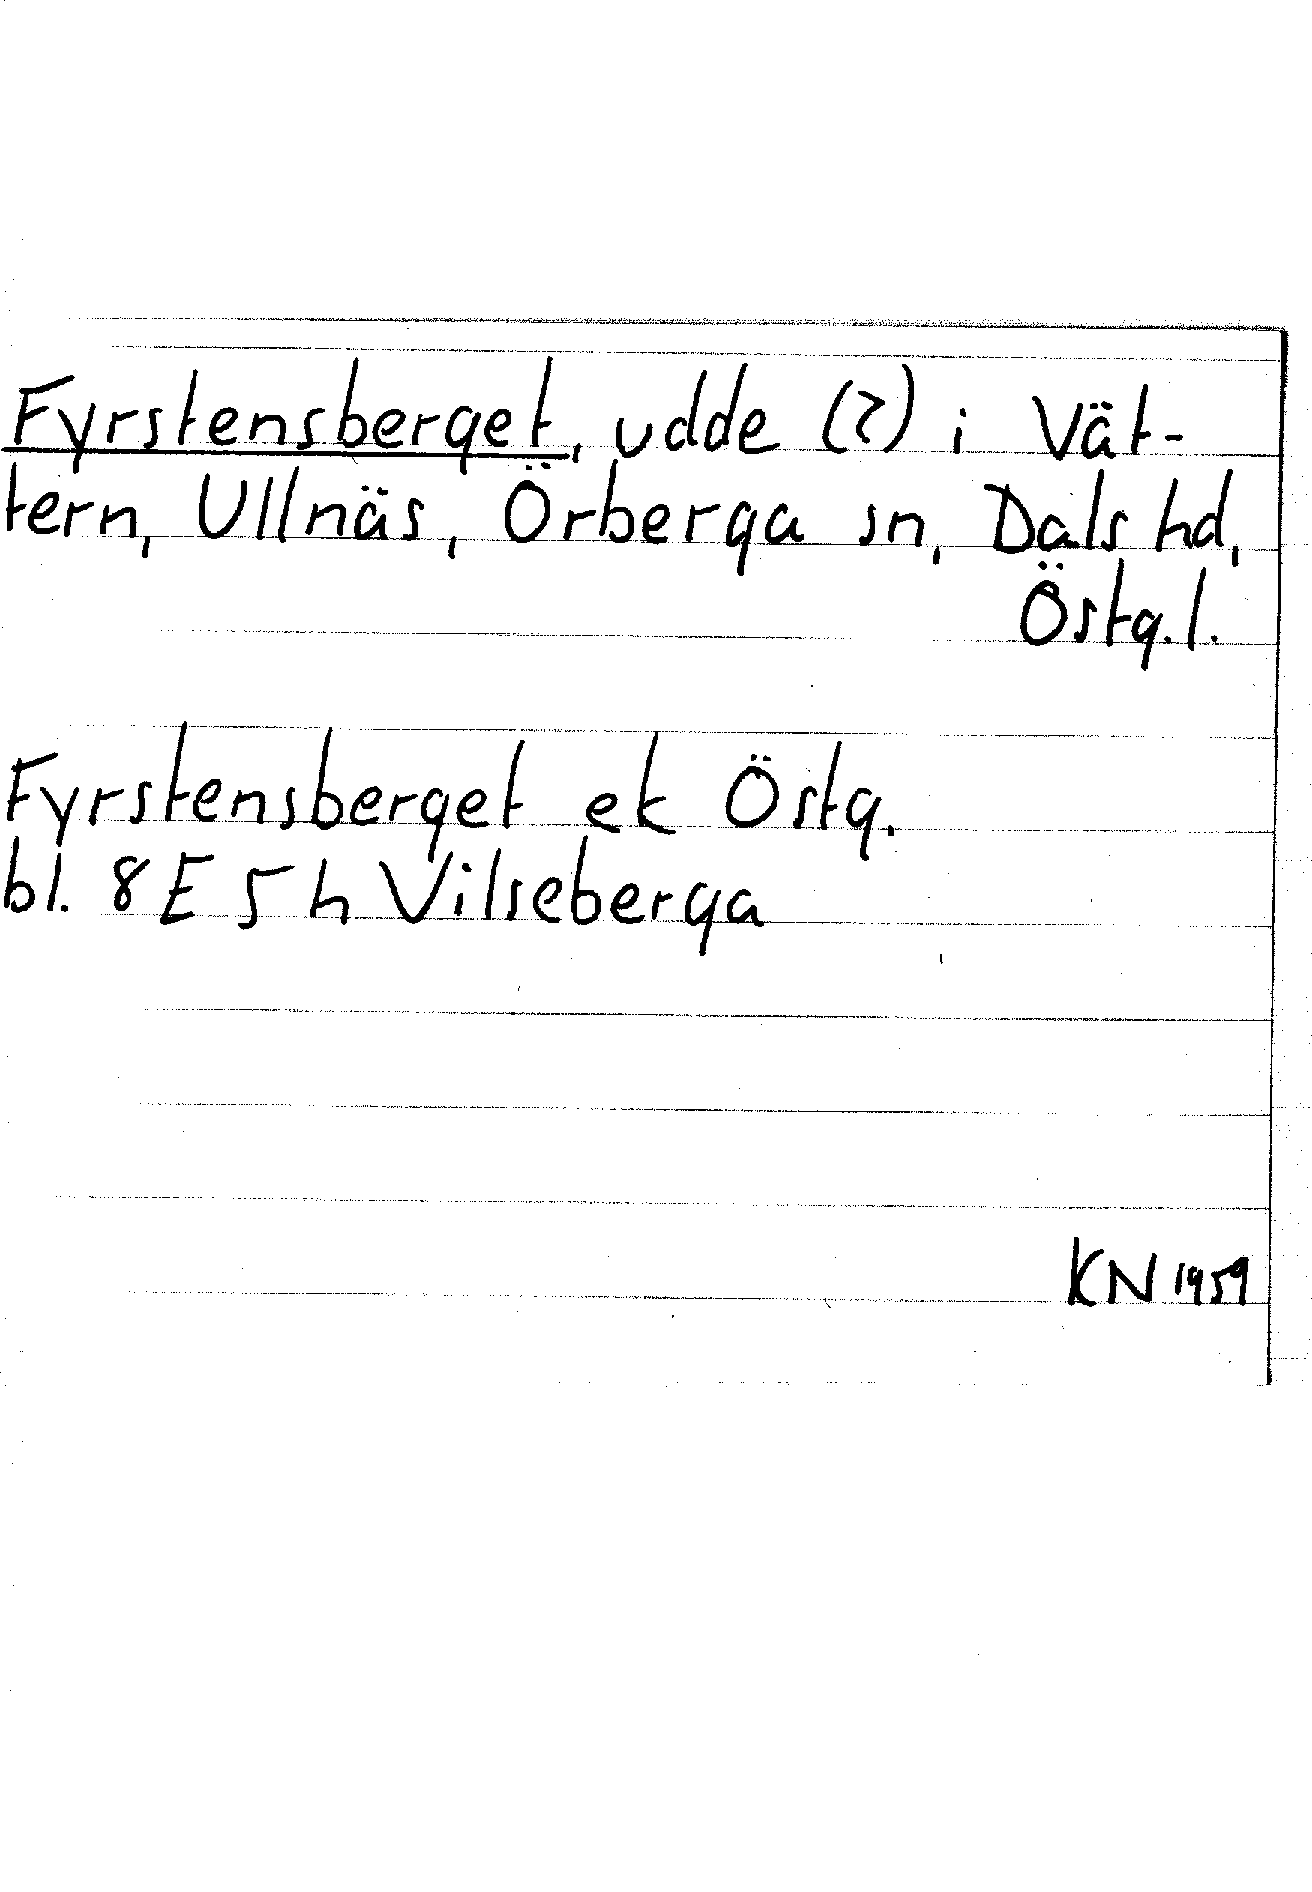 Fyrstensberget, udde (?) i Vät-
tern, Ullnäs, Örberga sn, Dals hd,
Östg.l.
Fyrstensberget ek Östg.
bl. 8E 5h Vilseberga
KN 1959